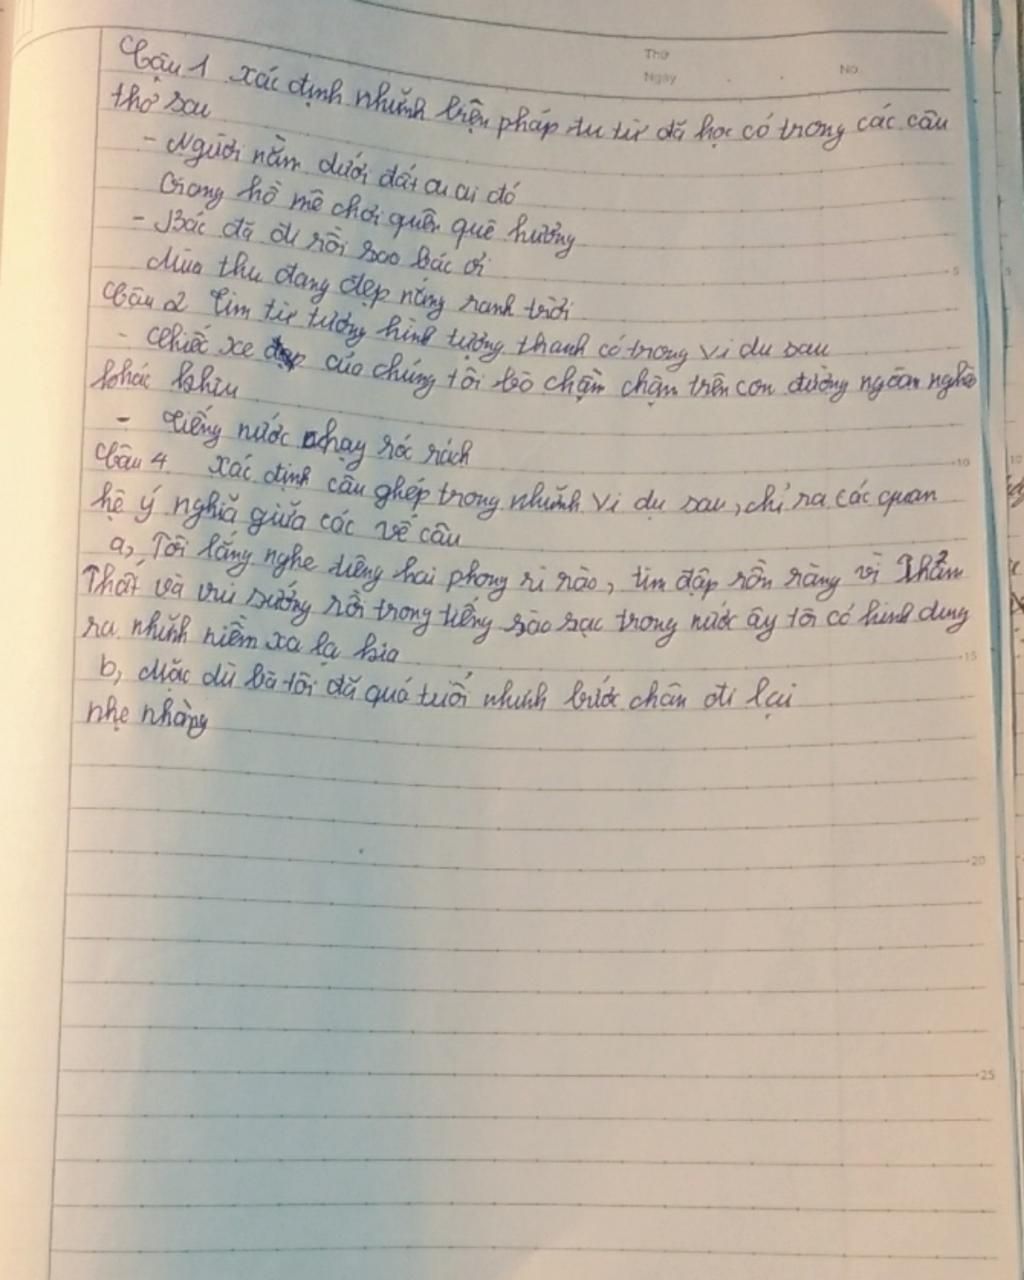 Thứ
Ngày No.
Câu 1 xác định những biện pháp tu từ đã học có trong các câu
thơ sau
- Người nằm dưới đất ai ai đó
Giang hồ mê chơi quên quê hương
- Bác đã đi rồi sao Bác ơi
Mùa thu đang đẹp nắng xanh trời
Câu 2 Tìm từ tượng hình tượng thanh có trong ví dụ sau
- Chiếc xe của chúng tôi bò chậm chậm trên con đường ngoằn nghèo
khúc khỉu
- Tiếng nước chạy róc rách
Câu 4 Xác định câu ghép trong những ví dụ sau, chỉ ra các quan
hệ ý nghĩa giữa các vế câu
a, Tôi lắng nghe tiếng hai phong rì rào, tim đập rộn ràng vì Thẩn
Thốt và vui sướng rồi trong tiếng xào xạc trong nước ấy tôi có hình dung
ra những niềm xa lạ kia
b, Mặc dù bà tôi đã quá tuổi nhưng bước chân đi lại
nhẹ nhàng
5
10
15
20
25